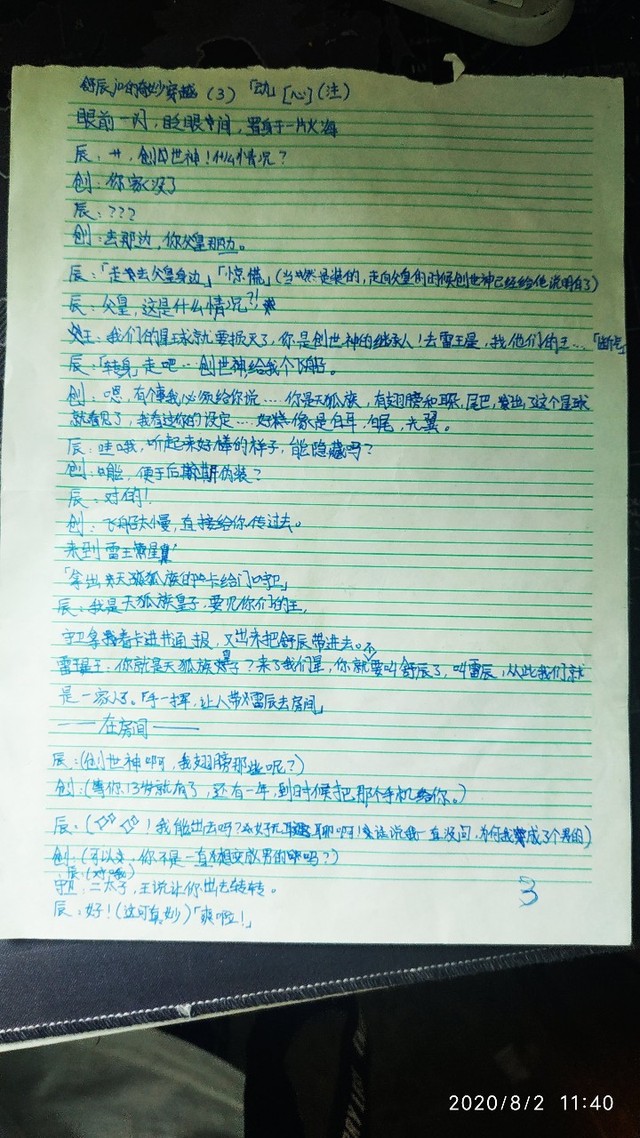 舒辰jo的奇妙穿越（3）「动」[心]（注）
眼前一闪，眨眼间，置身于一片火海
辰：卄，创世神！什么情况？
创：你家没了
辰：???
创：去那边，你父皇那边。
辰：「走去父皇身边」「惊慌」（当然是装的，走向父皇的时候创世神已经给他说明白了）
辰：父皇，这是什么情况?!
王：我们的星球就要报灭了，你是创世神的继承人！去雷王星，找他们的王…「断气」
辰：「转身」走吧…创世神给我个飞船。
创：嗯，有个事我必须给你说…你是天狐族，有翅膀和耳朵，尾巴，出了这个星球
就看见了，我看过你的设定…好像是白耳，白尾，光翼。
辰：哇哦，听起来好棒的样子，能隐藏吗？
创：能，便于后期伪装？
辰：对的！
创：飞船太慢，直接给你传过去。
来到雷王星
「拿出天狐族的卡给门口守卫」
辰：我是天狐族皇子，要见你们的王，
守卫拿着卡进去通报，又出来把舒辰带进去。
雷王星王：你就是天狐族皇子？来了我们星，你就不要叫舒辰了，叫雷辰，从此我们就
是一家人了。「手一挥，让人带雷辰去房间」
——在房间——
辰：（创世神啊，我翅膀那些呢？）
创：（等你13岁就有了，还有一年，到时候把那个手机给你。）
辰：（！我能出去吗？好无聊啊！话说我一直没问，为何我变成了个男的）
创：（可以，你不是一直想变成男的吗？）
辰：（对哦）
守卫：三太子，王说让你出去转转。
辰：好！（这可真妙）「爽啦！」
3
2020/8/2 11:40